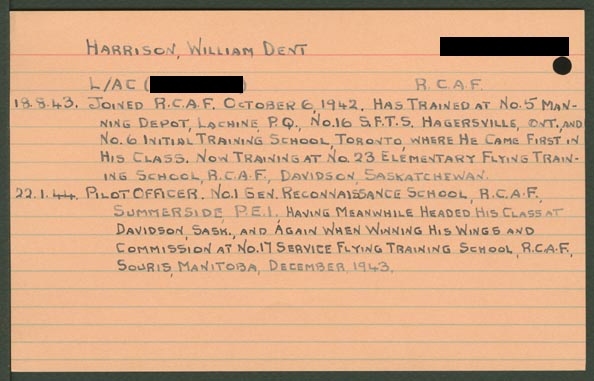 HARRISON, WILLIAM DENT
L/AC ( ) R.C.A.F.
18.8.43. JOINED R.C.A.F. OCTOBER 6, 1942. HAS TRAINED AT NO.5 MAN-
NING DEPOT, LACHINE, P.Q., NO.16 S.F.T.S. HAGERSVILLE, ONT., AND
NO.6 INITIAL TRAINING SCHOOL, TORONTO, WHERE HE CAME FIRST IN
HIS CLASS. NOW TRAINING AT NO.23 ELEMENTARY FLYING TRAIN-
ING SCHOOL, R.C.A.F., DAVIDSON, SASKATCHEWAN.
22.1.44. PILOT OFFICER. NO.1 GEN. RECONNAISSANCE SCHOOL, R.C.A.F.,
SUMMERSIDE, P.E.I., HAVING MEANWHILE HEADED HIS CLASS AT
DAVIDSON, SASK., AND AGAIN WHEN WINNING HIS WINGS AND
COMMISSION AT NO.17 SERVICE FLYING TRAINING SCHOOL, R.C.A.F.,
SOURIS, MANITOBA, DECEMBER, 1943.